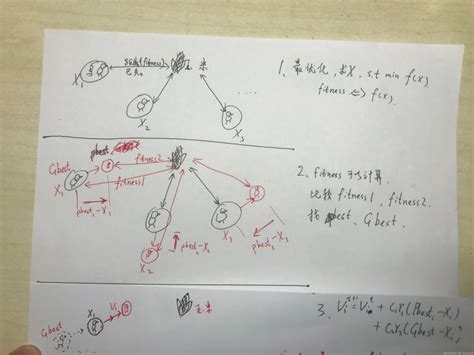 距离(fitness)
已知
玉米
X₁
X₂
X₃
1、最优化,求X, s.t min f(x)
fitness <=> f(x).
pbest₁
Gbest
fitness2
fitness1
X₁
pbest₁-X₁
X₂
pbest₂-X₂
X₃
pbest₃-X₃
2、fitness 可以计算.
比较 fitness1, fitness2.
找 pbest、Gbest、
Gbest
X₁
V₁
玉米
3、Vᵢᵗ⁺¹=Vᵢᵗ + C₁Y₁(Pbestᵢ-Xᵢ)
+ C₂Y₂(Gbest-Xᵢ)